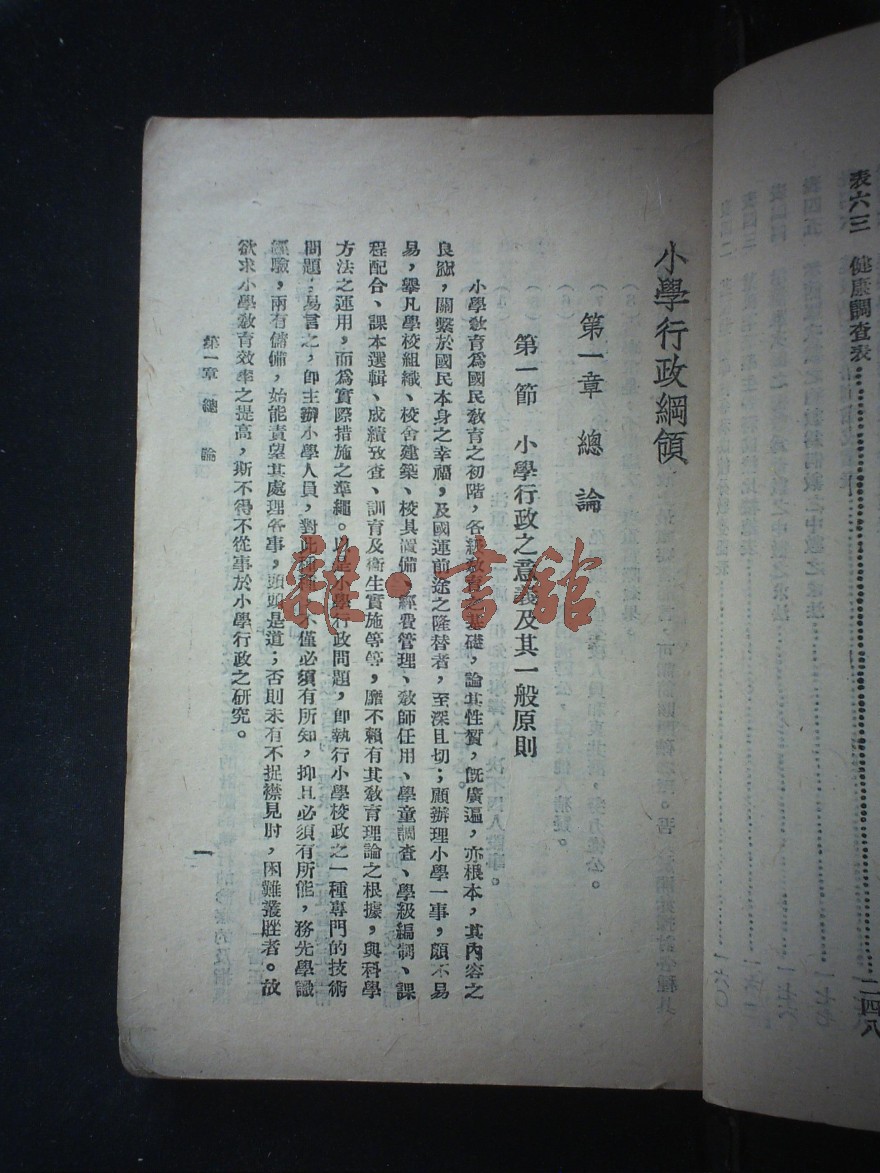 表六三　健康調查表……二四八
小學行政綱領
第一章　總論
第一節　小學行政之意義及其一般原則
小學敎育爲國民敎育之初階，各級敎育之基礎，論其性質，旣廣遍，亦根本，其內容之
良窳，關繫於國民本身之幸福，及國運前途之隆替者，至深且切；顧辦理小學一事，頗不易
易，舉凡學校組織、校舍建築、校具置備、經費管理、敎師任用、學童調查、學級編制、課
程配合、課本選輯、成績攷查、訓育及衞生實施等等，靡不賴有其敎育理論之根據，與科學
方法之運用，而爲實際措施之準繩。以是小學行政問題，卽執行小學校政之一種專門的技術
問題；易言之，卽主辦小學人員，對此種種，不僅必須有所知，抑且必須有所能，務先學識
經驗，兩有儲備，始能責望其處理各事，頭頭是道；否則未有不捉襟見肘，困難叢脞者。故
欲求小學敎育效率之提高，斯不得不從事於小學行政之研究。
第一章　總　論
一
雜·書館